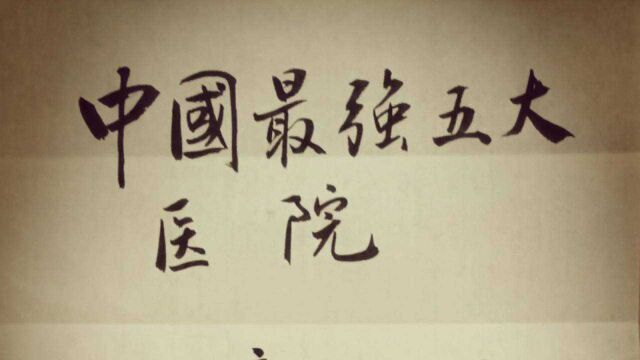 中國最強五大
医院